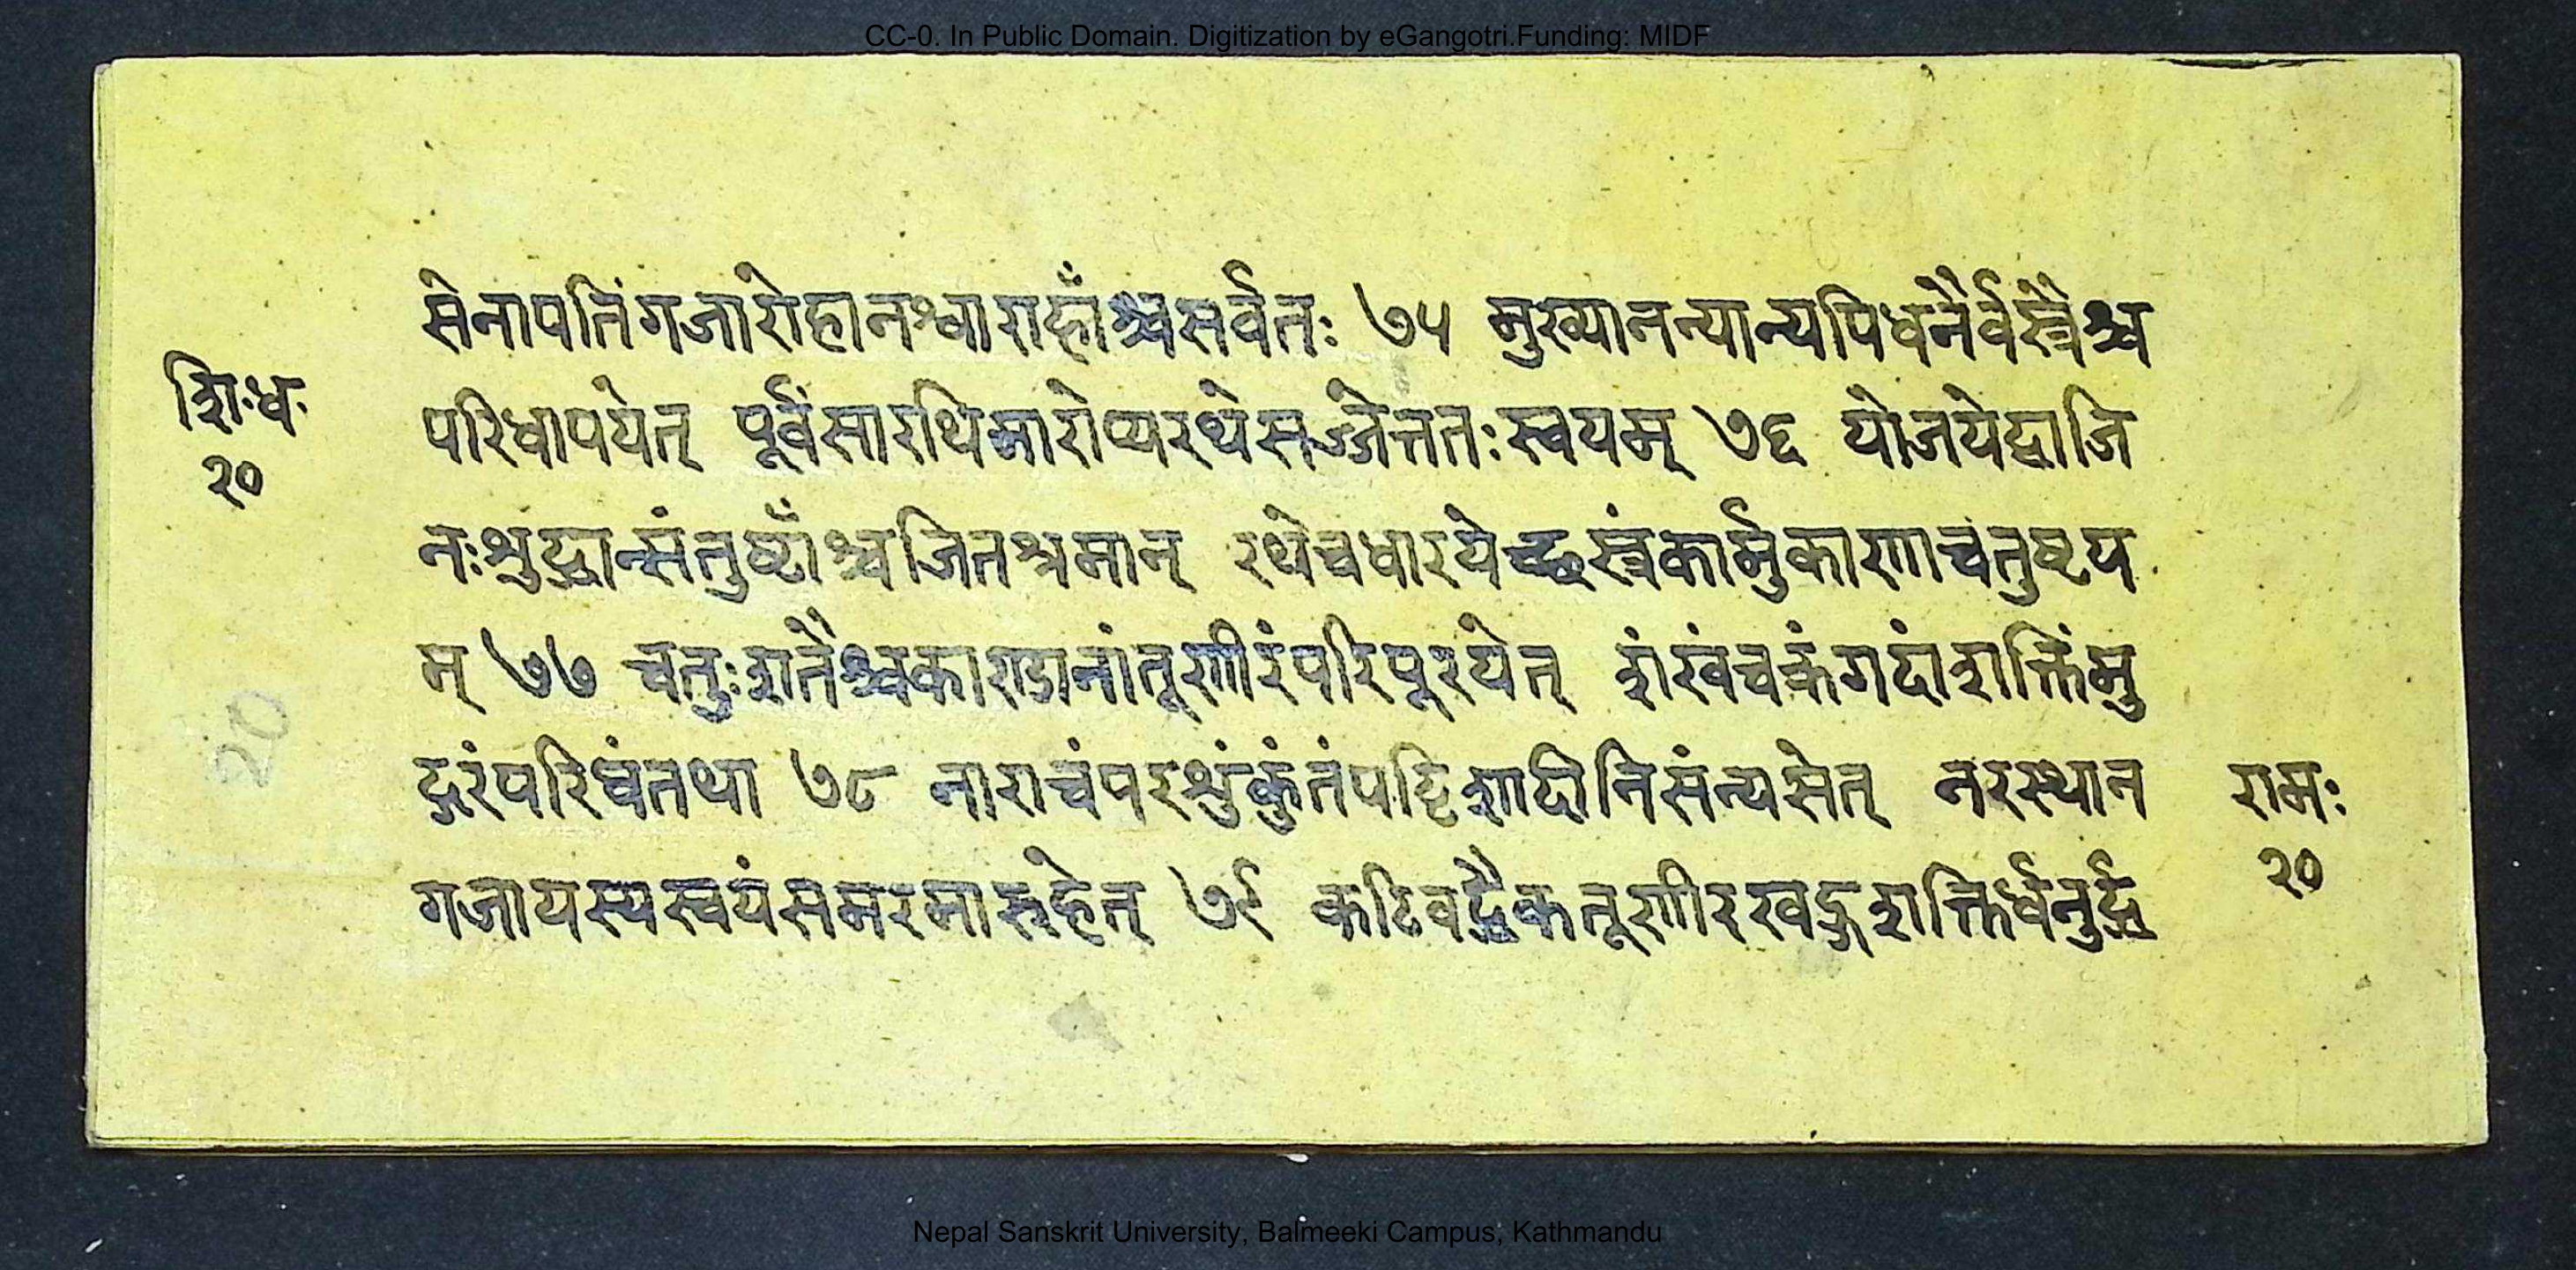 CC-0. In Public Domain. Digitization by eGangotri.Funding: MIDF
सेनापतिंगजारोहानश्वाराहाँश्चसर्वतः ७५ मुख्यानन्यान्यपिधनैर्वस्त्रैश्च
शिःधः
२०
परिधापयेत् पूर्वंसारथिमारोप्यरथेसज्जेत्ततःस्वयम् ७६ योजयेद्वाजि
नःश्रुद्धान्संतुष्टाँश्चजितश्रमान् रथेचधारयेच्छस्त्रंकार्मुकाणाचतुष्टय
म् ७७ चतुःशतैश्चकाण्डानांतूणीरंपरिपूरयेत् शंखंचक्रंगदांशक्तिंमु
20
द्गरंपरिघंतथा ७८ नाराचंपरश्रुंकुंतंपट्टिशादीनिसंन्यसेत् नरस्थान
रामः
२०
गजायस्यस्वयंसमरमारुहेत् ७९ कटिबद्धैकतूणीरखड्गशक्तिर्धनुर्द्ध
Nepal Sanskrit University, Balmeeki Campus, Kathmandu